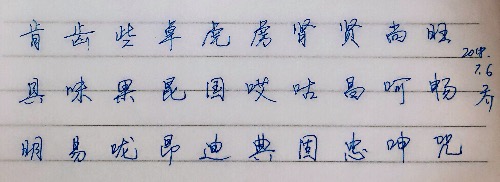 肯 齿 些 卓 虎 虏 肾 贤 尚 旺
具 味 果 昆 国 哎 咕 昌 呵 畅
明 易 咙 昂 迪 典 固 忠 呻 咒
2018.
7.6